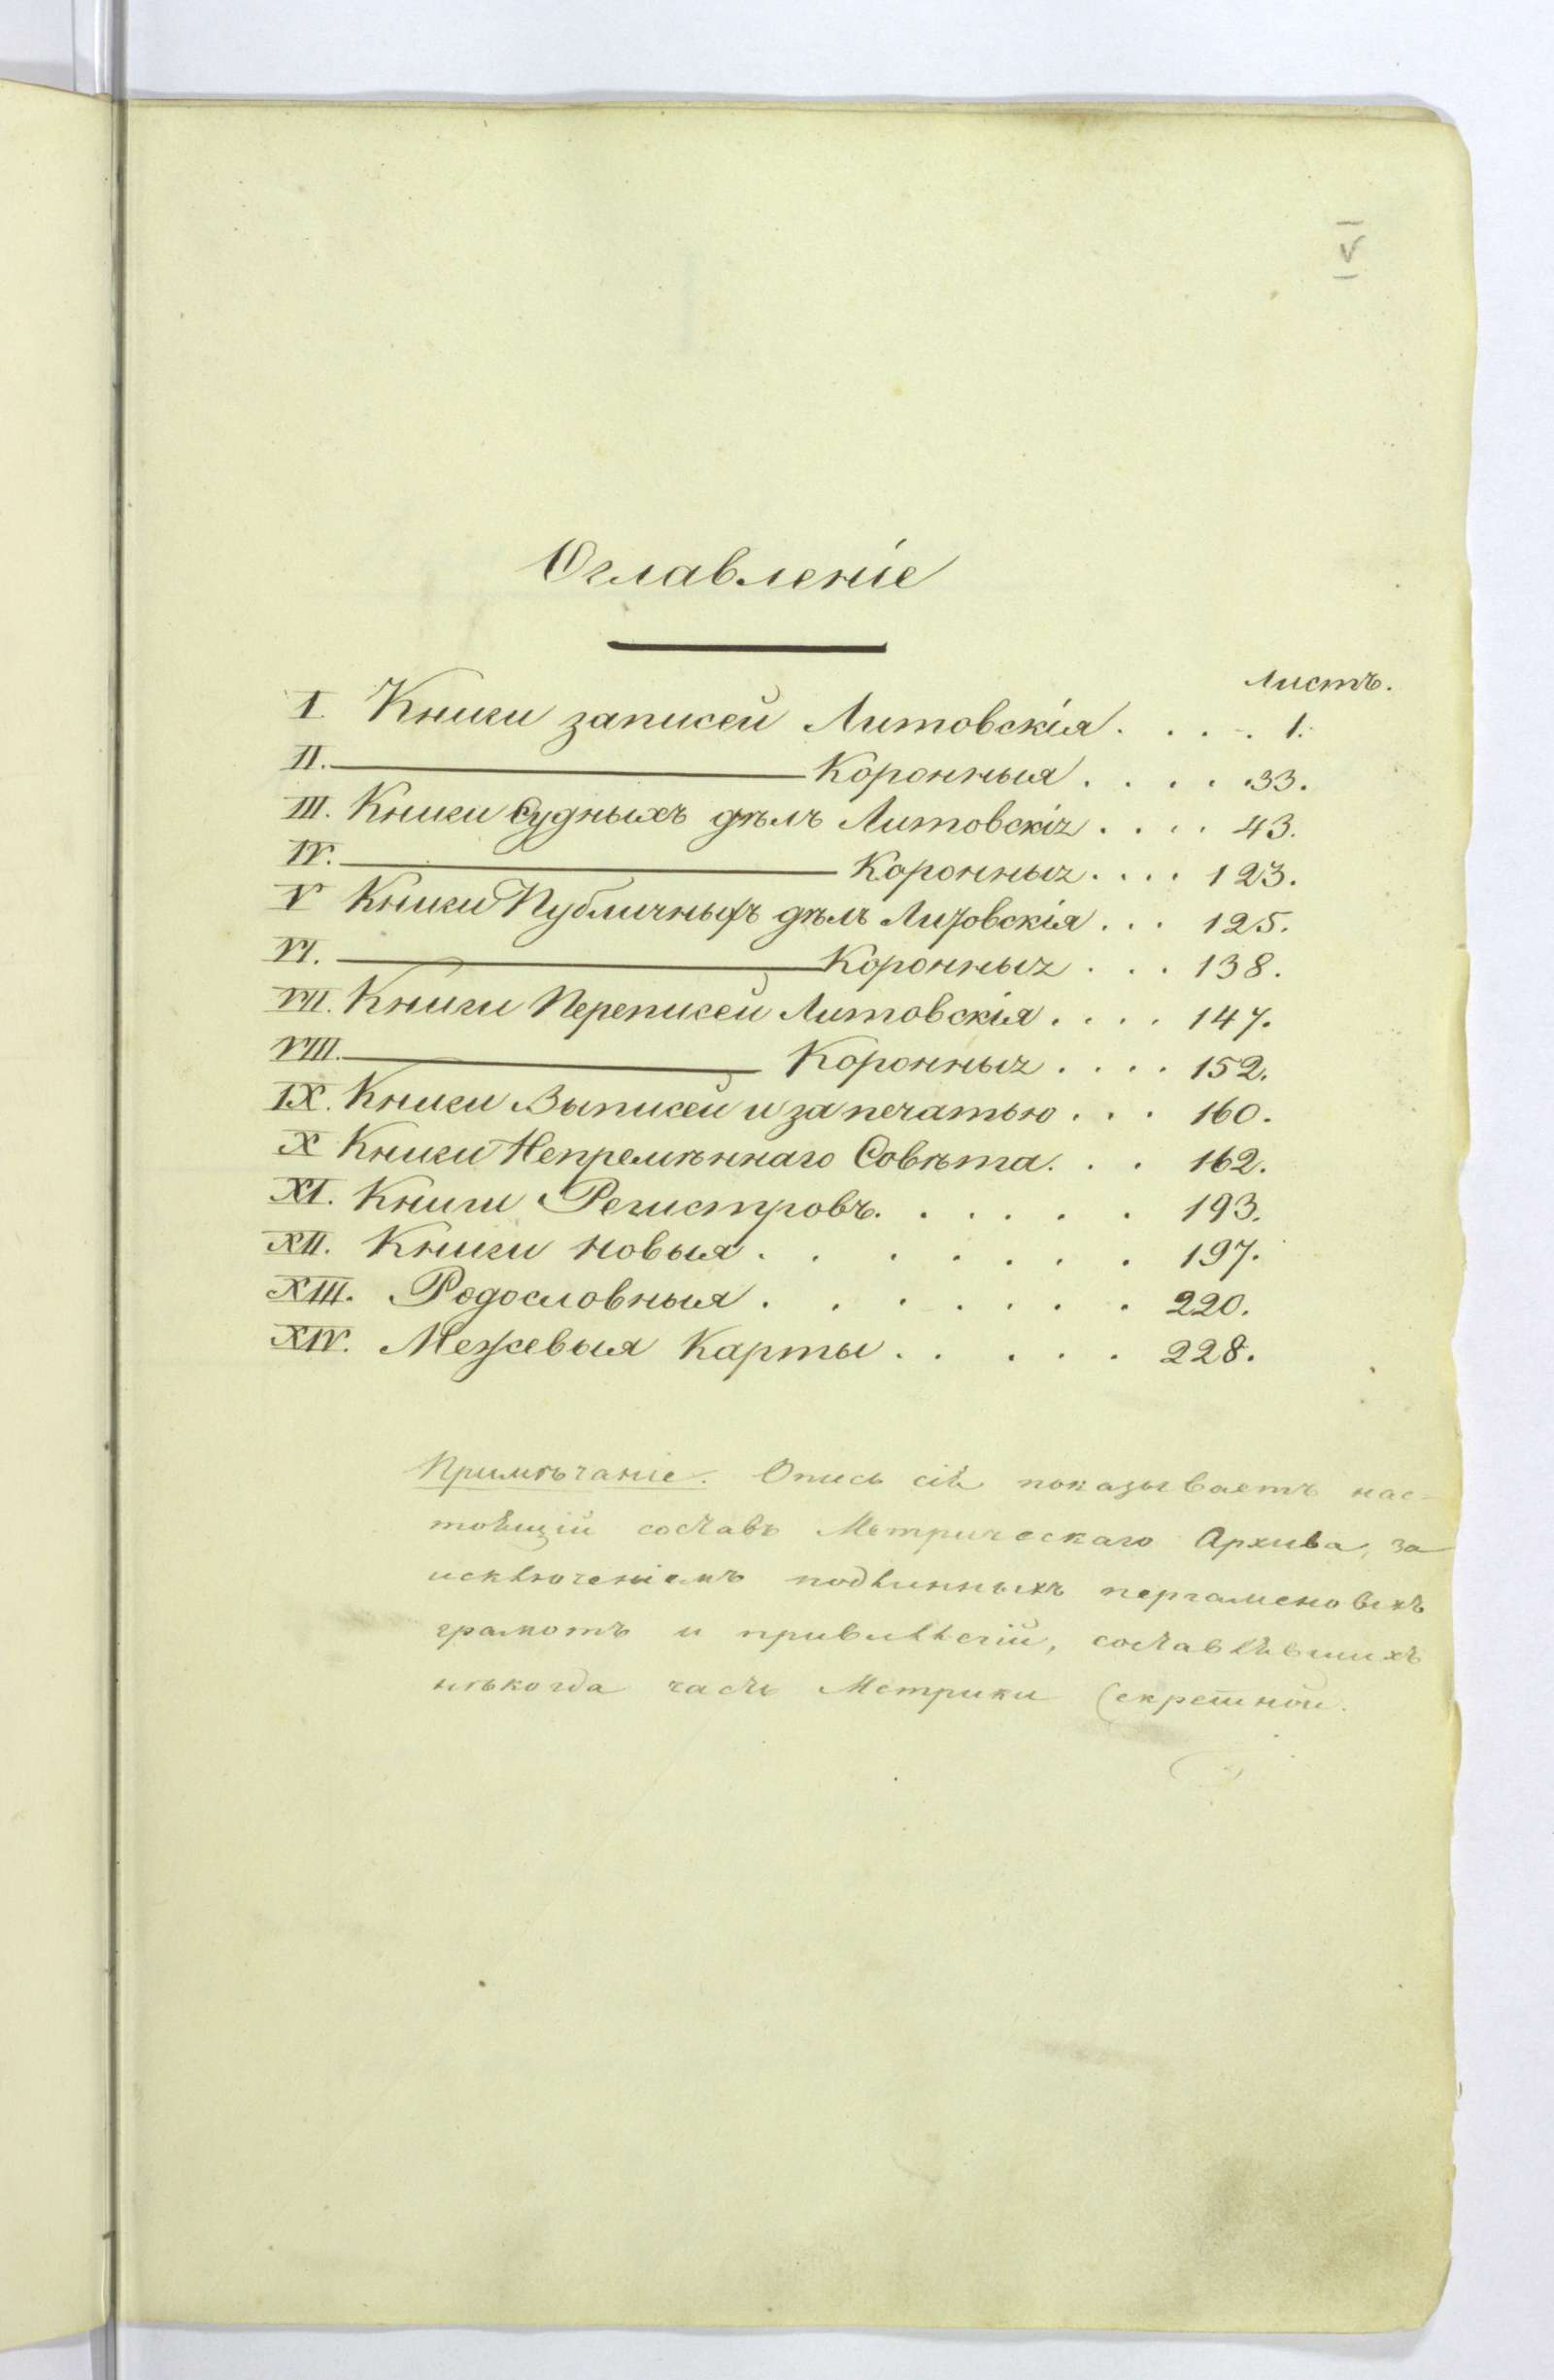 V
Оглавленіе
Листъ.
I. Книги записей Литовскія . . . . 1.
II. ——— Коронныя . . . . 33.
III. Книги Судныхъ дѣлъ Литовскія . . . . 43.
IV. ——— Коронныя . . . . 123.
V Книги Публичныхъ дѣлъ Литовскія . . . 125.
VI. ——— Коронныя . . . 138.
VII. Книги Переписей Литовскія . . . . 147.
VIII. ——— Коронныя . . . . 152.
IX. Книги Выписей и за печатью . . . 160.
X Книги Непремѣннаго Совѣта . . . 162.
XI. Книги Регистровъ . . . . . 193.
XII. Книги новыя . . . . . . . 197.
XIII. Родословныя . . . . . . . 220.
XIV. Межевыя Карты . . . . . 228.
Примѣчаніе. Опись сія показываетъ нас-
тоящій составъ Метрическаго Архива, за
исключеніемъ подлинныхъ пергаменовыхъ
грамотъ и привиллегій, составлявшихъ
нѣкогда часть Метрики Секретной.